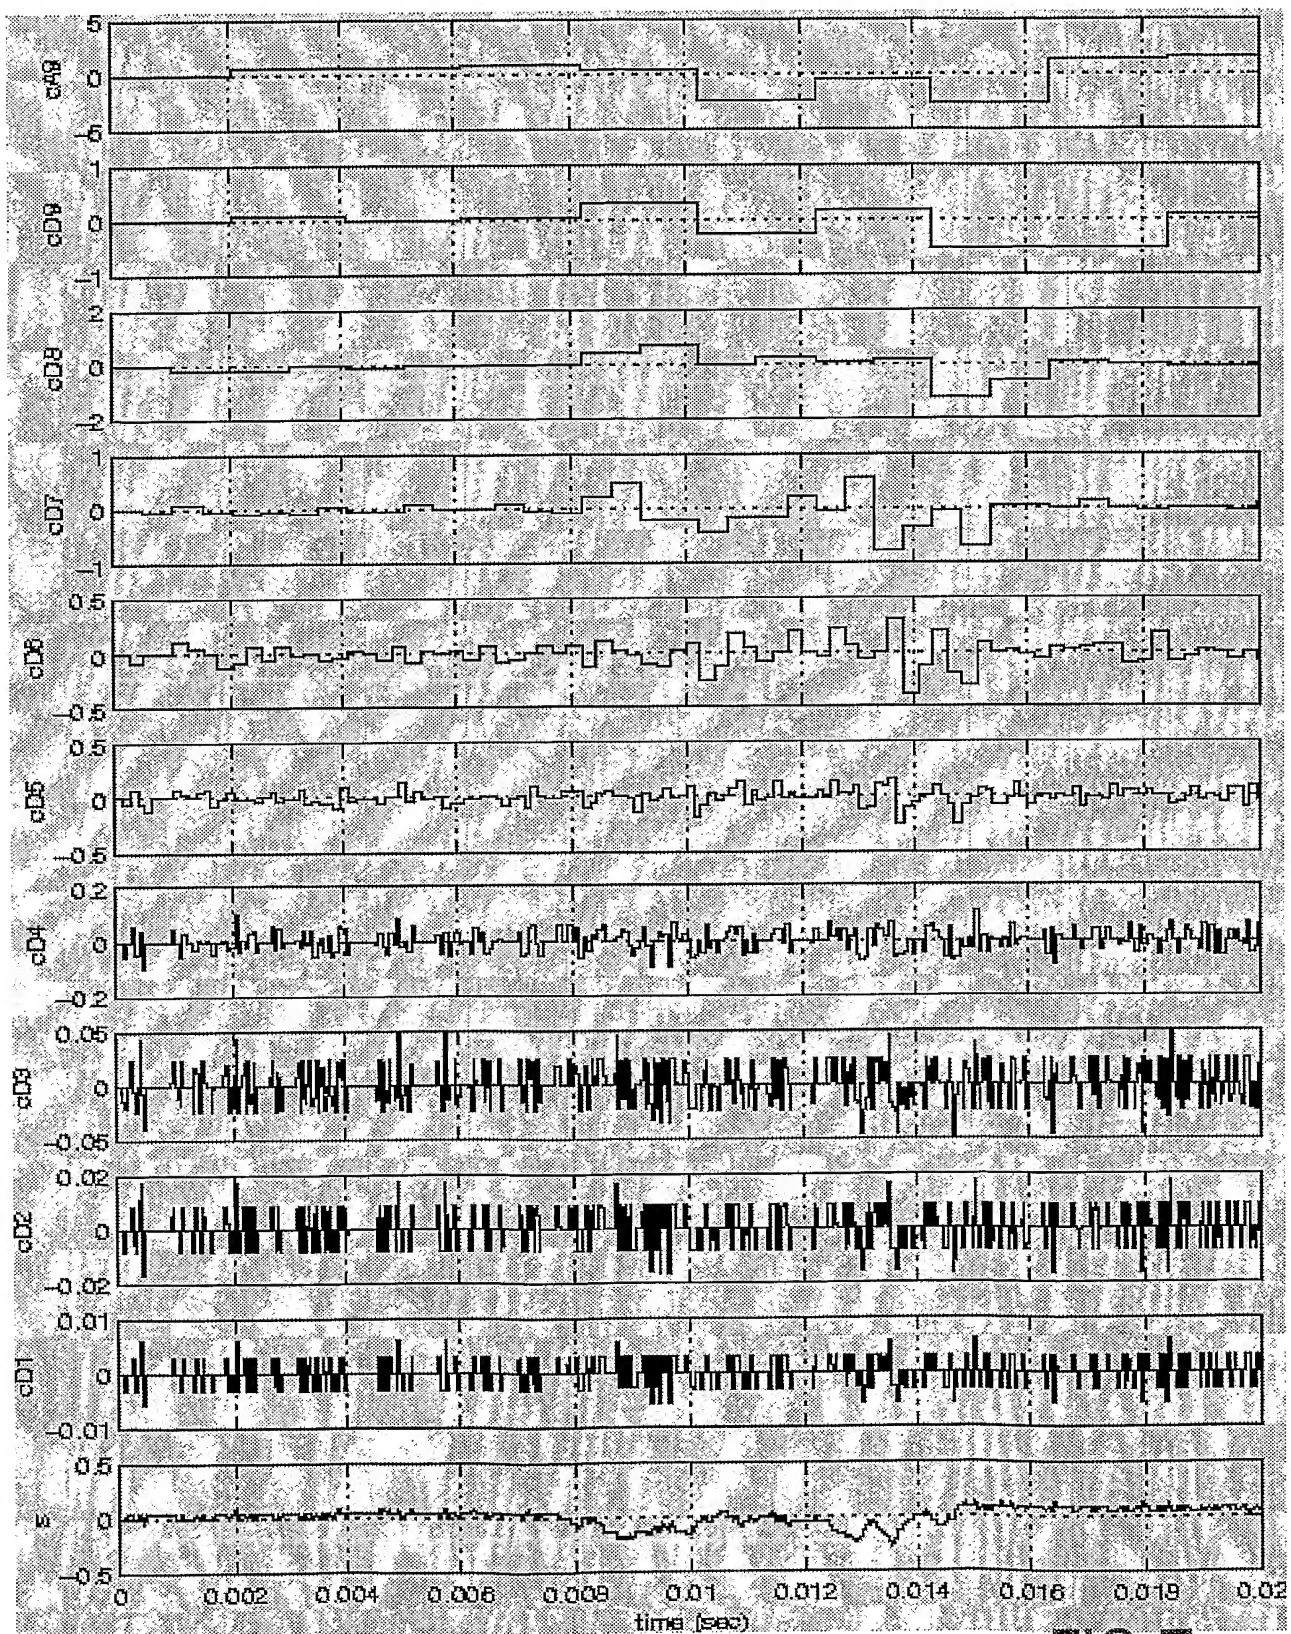 5
cA9
0
-5
1
cD9
0
-1
2
cD8
0
-2
1
cD7
0
-1
0.5
cD6
0
-0.5
0.5
cD5
0
-0.5
0.2
cD4
0
-0.2
0.05
cD3
0
-0.05
0.02
cD2
0
-0.02
0.01
cD1
0
-0.01
0.5
s
0
-0.5
0 0.002 0.004 0.006 0.008 0.01 0.012 0.014 0.016 0.018 0.02
time (sec)